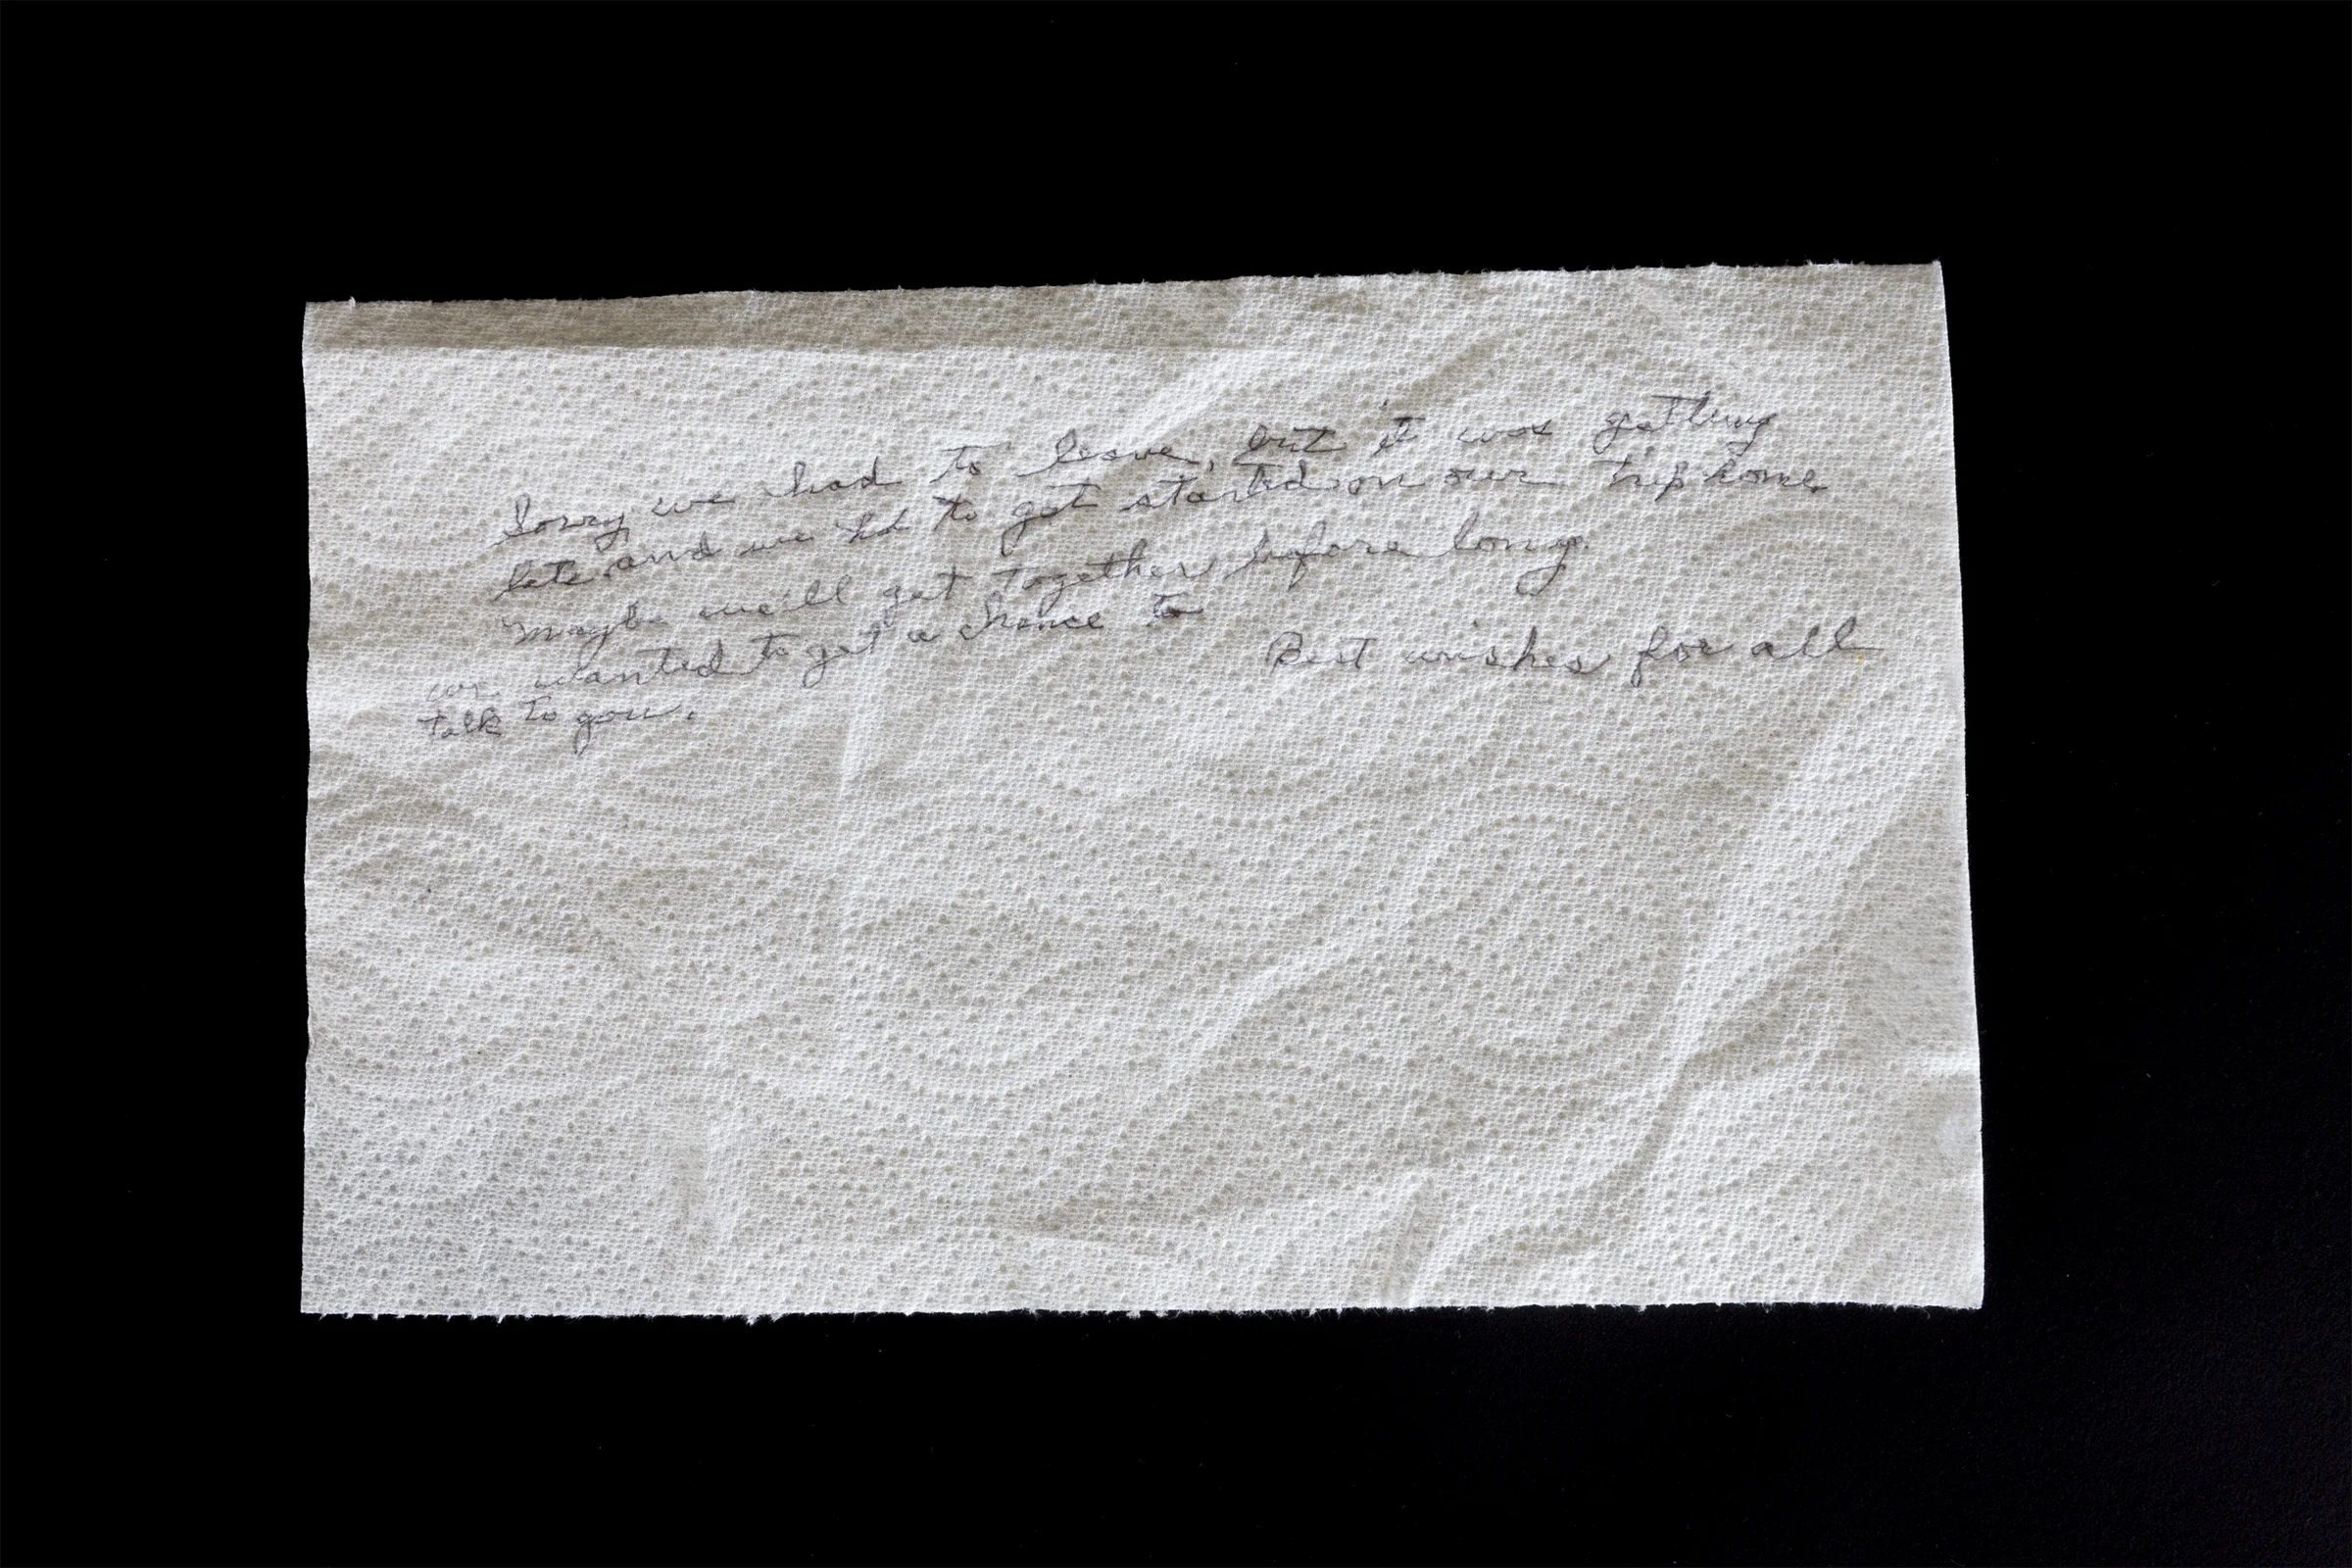 Sorry we had to leave, but it was getting
late and we hd to get started on our trip home
Maybe we'll get together before long.
we wanted to get a chance to
talk to you.
Best wishes for all